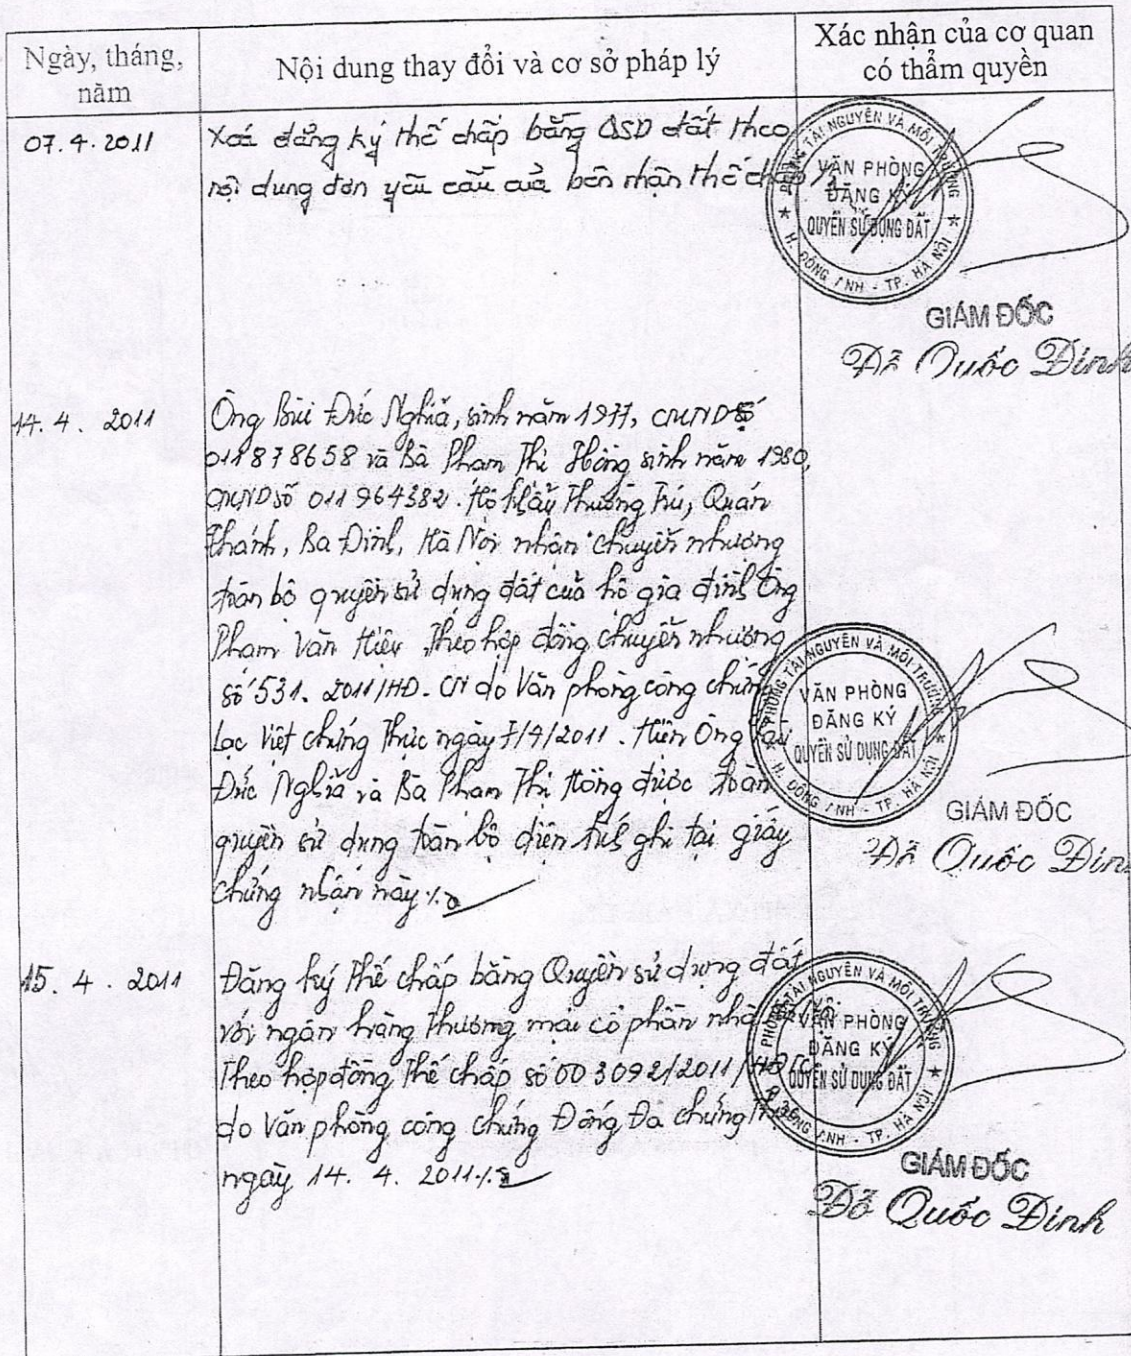 Ngày, tháng,
năm
Nội dung thay đổi và cơ sở pháp lý
Xác nhận của cơ quan
có thẩm quyền
07.4.2011
Xoá đăng ký thế chấp bằng QSD đất theo
nội dung đơn yêu cầu của bên nhận thế chấp ./.
PHÒNG TÀI NGUYÊN VÀ MÔI TRƯỜNG
VĂN PHÒNG
ĐĂNG KÝ
QUYỀN SỬ DỤNG ĐẤT
★ H. ĐÔNG ANH - TP. HÀ NỘI ★
GIÁM ĐỐC
Đỗ Quốc Đinh
14. 4. 2011
Ông Bùi Đức Nghĩa, sinh năm 1977, CMND số
011878658 và Bà Phạm Thị Hồng sinh năm 1980,
CMND số 011964382. Hộ khẩu Thường Trú, Quán
Thánh, Ba Đình, Hà Nội nhận chuyển nhượng
toàn bộ quyền sử dụng đất của hộ gia đình Ông
Phạm Văn Theo hợp đồng chuyển nhượng
số 531. 2011/HĐ. CN do Văn phòng công chứng
Lạc Việt chứng thực ngày 7/4/2011. Hiện Ông
Đức Nghĩa và Bà Phạm Thị Hồng được toàn
quyền sử dụng toàn bộ diện tích ghi tại giấy
chứng nhận này ./.
PHÒNG TÀI NGUYÊN VÀ MÔI TRƯỜNG
VĂN PHÒNG
ĐĂNG KÝ
QUYỀN SỬ DỤNG ĐẤT
★ H. ĐÔNG ANH - TP. HÀ NỘI ★
GIÁM ĐỐC
Đỗ Quốc Đinh
15. 4. 2011
Đăng ký Thế chấp bằng Quyền sử dụng đất
với ngân hàng thương mại cổ phần nhà
Theo hợp đồng Thế chấp số 003092/2011/HĐTC
do Văn phòng công chứng Đống Đa chứng thực
ngày 14. 4. 2011./.
PHÒNG TÀI NGUYÊN VÀ MÔI TRƯỜNG
VĂN PHÒNG
ĐĂNG KÝ
QUYỀN SỬ DỤNG ĐẤT
H. ĐÔNG ANH - TP. HÀ NỘI ★
GIÁM ĐỐC
Đỗ Quốc Đinh